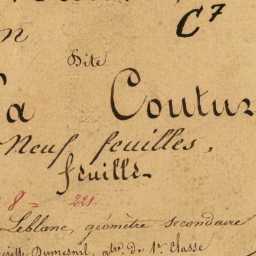 C⁷
n
Dite
La Coutur
Neuf feuilles.
feuille
8 = 221
Leblanc, géomètre secondaire
Dumesnil, de 1re classe